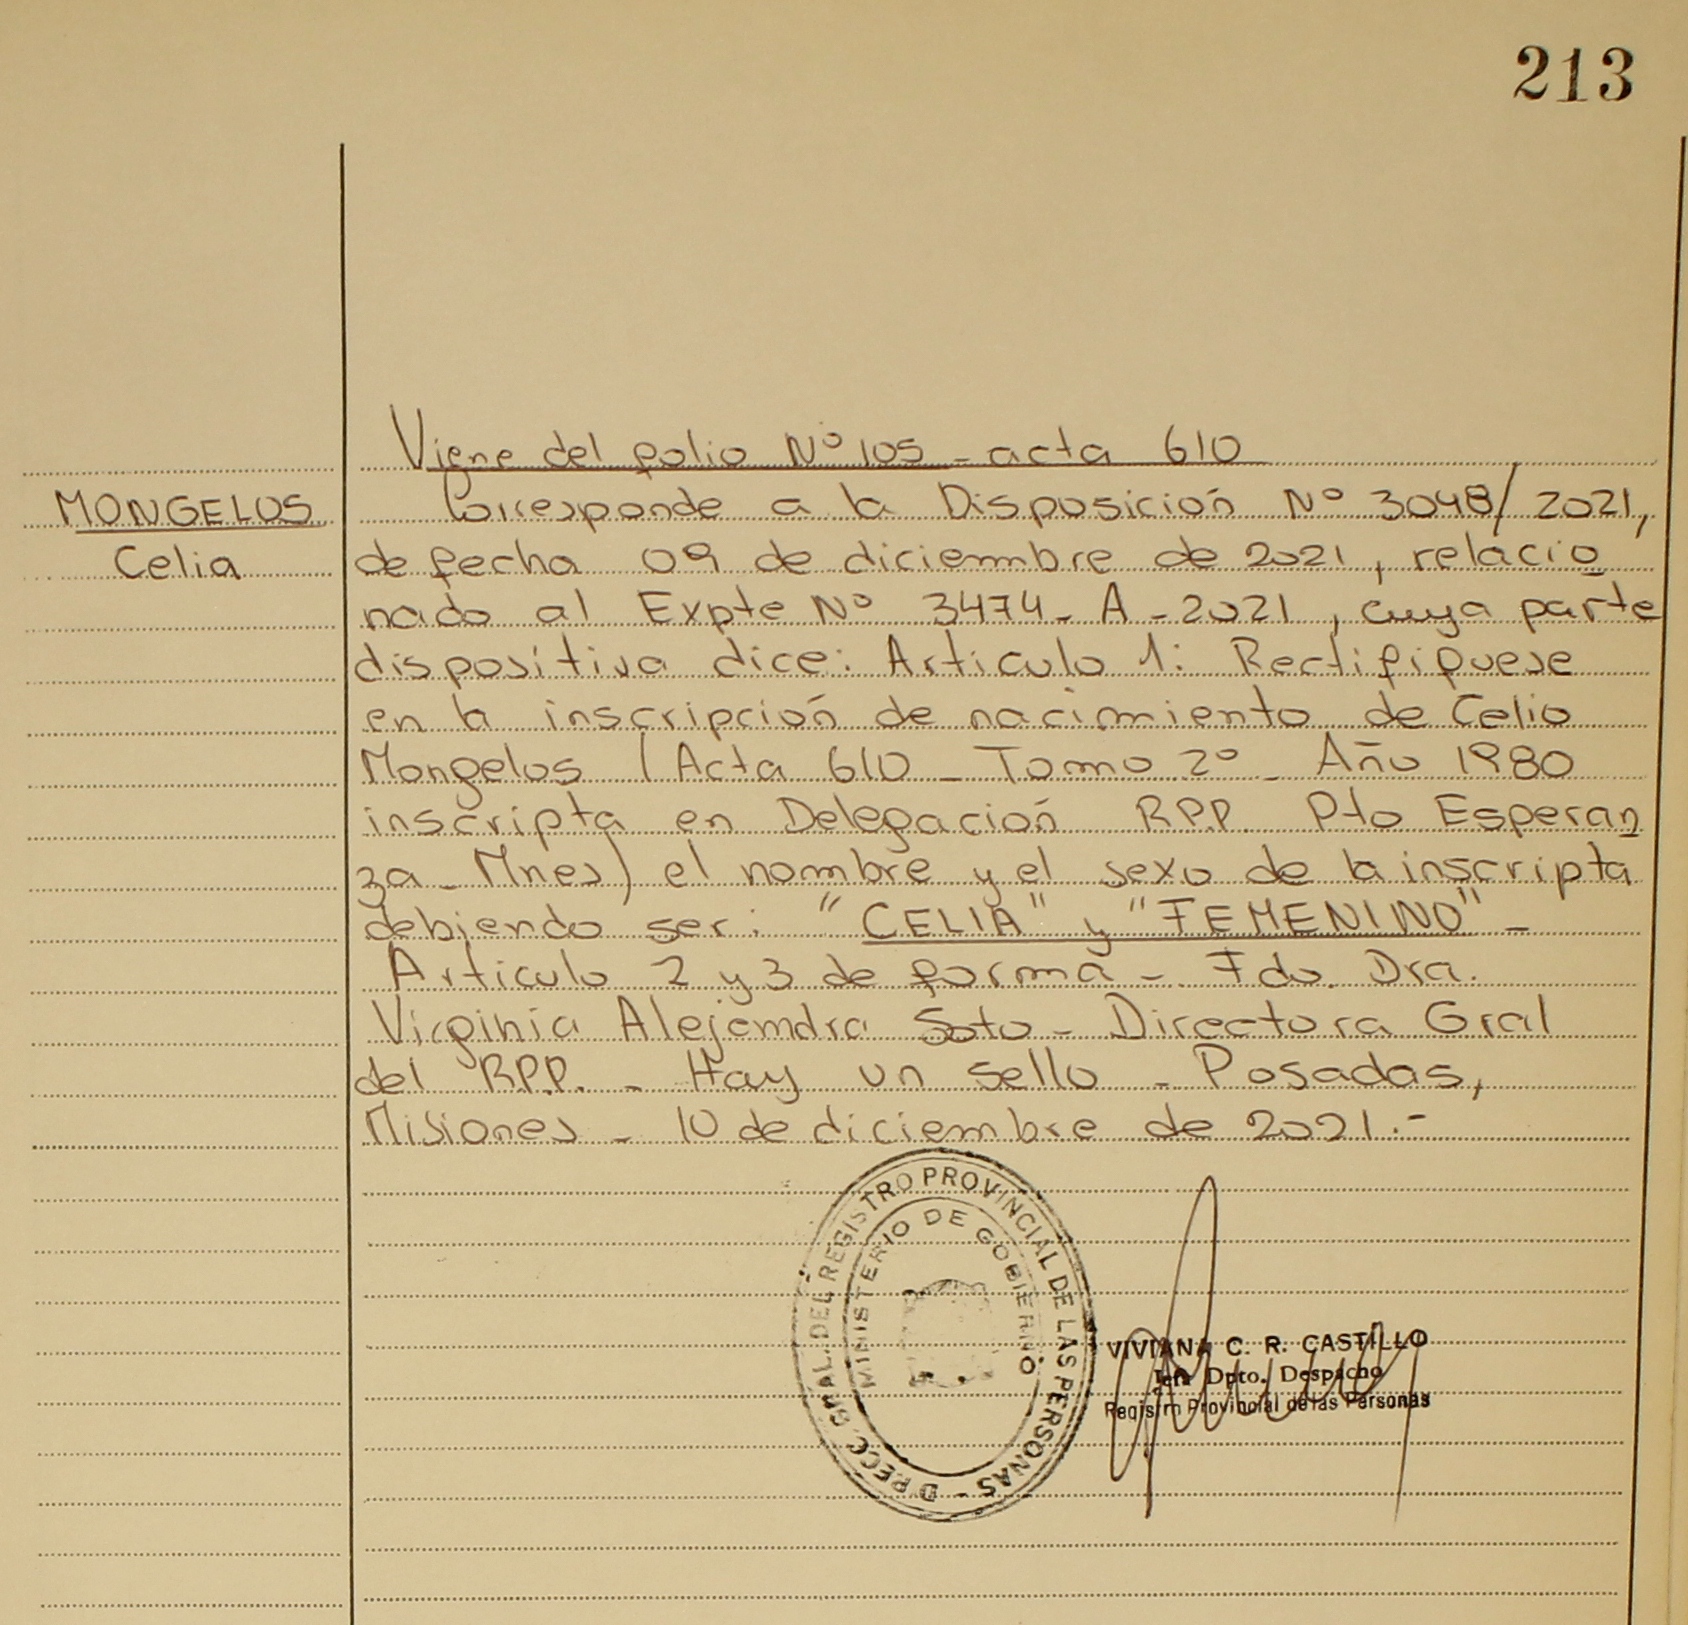 213
Viene del folio Nº 105 - acta 610
MONGELOS
Celia
Corresponde a la Disposición Nº 3048/2021,
de fecha 09 de diciembre de 2021, relacio
nado al Expte Nº 3474 - A - 2021, cuya parte
dispositiva dice: Artículo 1: Rectifiquese
en la inscripción de nacimiento de Celio
Mongelos (Acta 610 - Tomo 2º - Año 1980
inscripta en Delegación RPP. Pto Esperan
za - Mnes) el nombre y el sexo de la inscripta
debiendo ser: "CELIA" y "FEMENINO" -
Artículo 2 y 3 de forma - Fdo. Dra.
Virginia Alejandra Soto - Directora Gral
del RPP. - Hay un sello - Posadas,
Misiones - 10 de diciembre de 2021.-
DIRECC. GRAL. DEL REGISTRO PROVINCIAL DE LAS PERSONAS -
MINISTERIO DE GOBIERNO
VIVIANA C. R. CASTILLO
Jefa Dpto. Despacho
Registro Provincial de las Personas